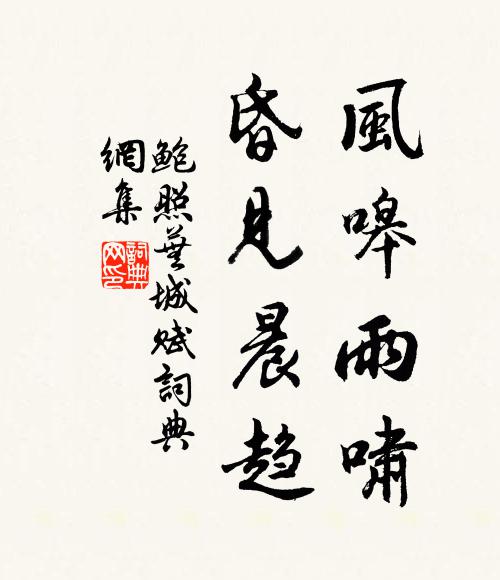 風嗥雨嘯
昏見晨趨
鮑照蕪城賦詞典
網集
詞典網印